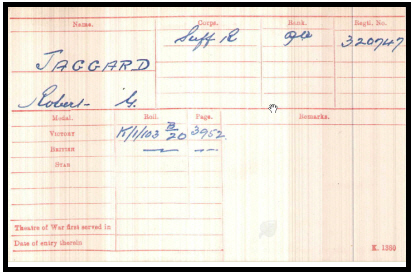 Name. Corps. Rank. Regtl. No.
Suff R Pte 320747
JAGGARD
Robert G.
Medal. Roll. Page. Remarks.
VICTORY K/1/103 B/20 3952
BRITISH
STAR
Theatre of War first served in
Date of entry therein
K. 1380